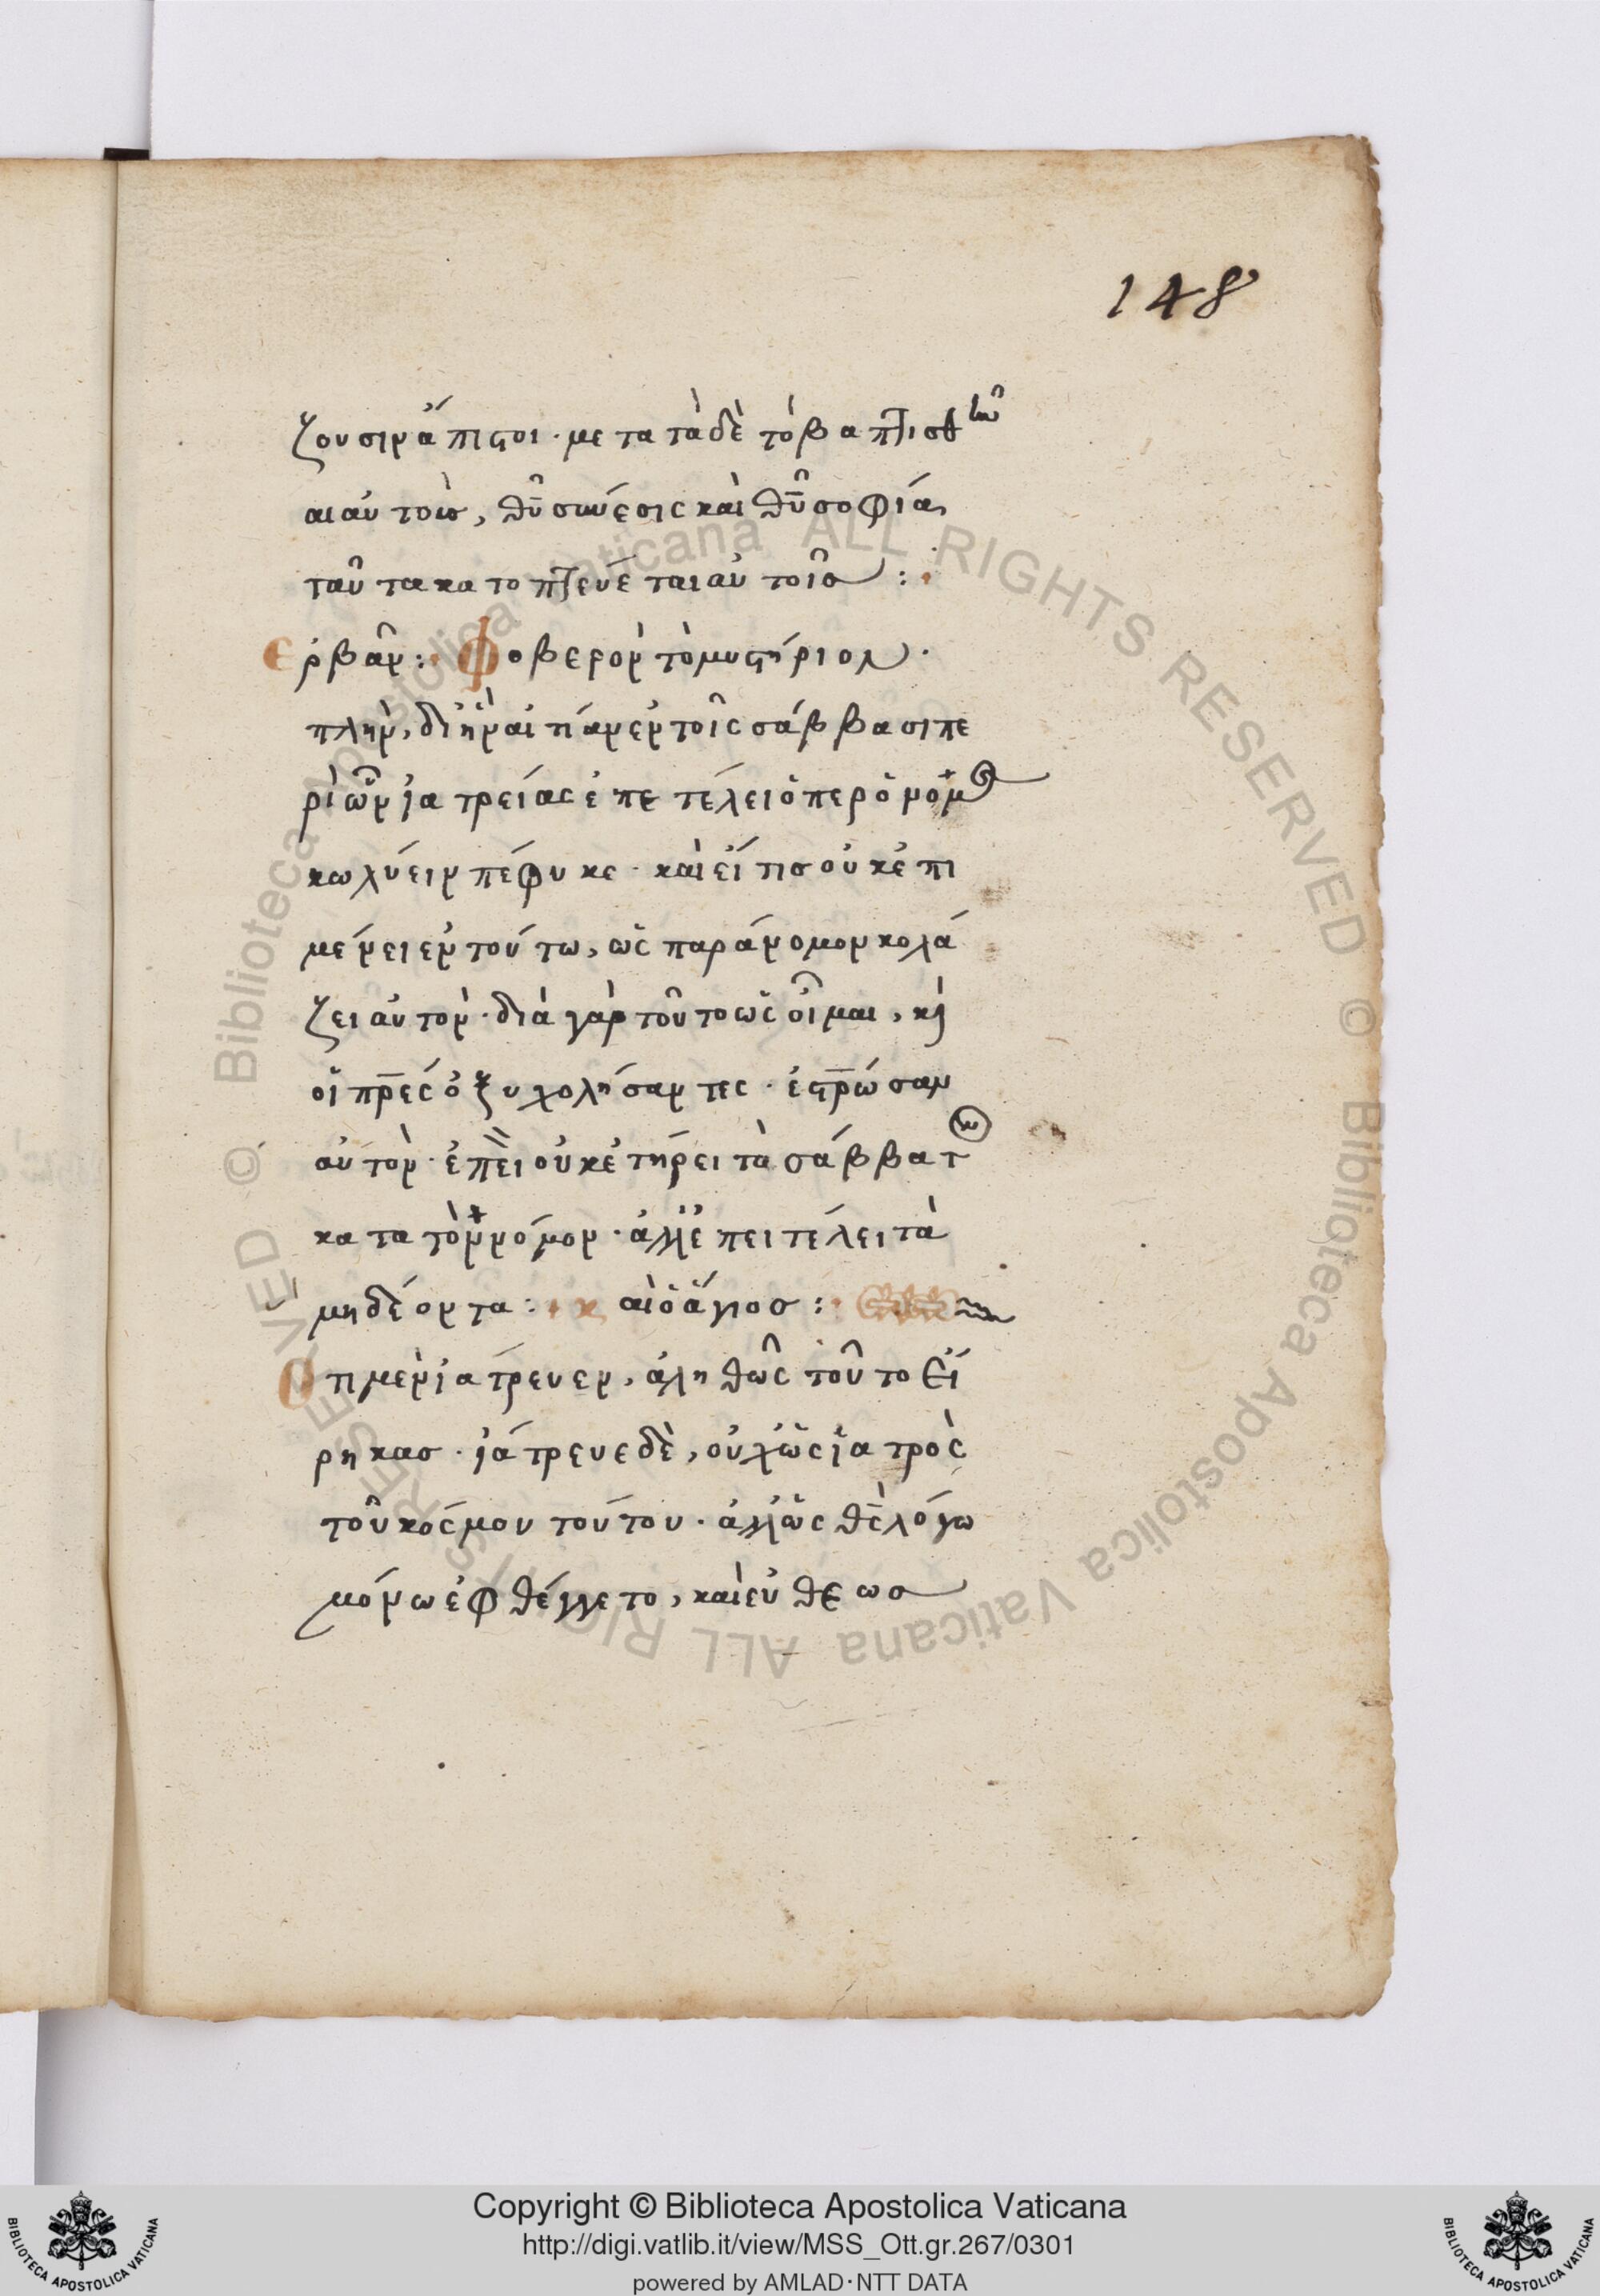 148
ζουσιν ἄπιστοι· μετὰ τὰ δὲ τὸ βαπτισθῆν
αι αὐτοὺς, θῦ συνέσις καὶ θῦ σοφία,
ταῦτα κατοπτεύεται αὐτοῖς :·
Ερβὰν :· Φοβερὸν τὸ μυστήριον·
πλὴν, δι ἣν αἰτίαν ἐν τοῖς σάββασι πε
ρὶ ὧν ἰατρείας ἐπετέλει ὅπερ ὁ νόμος
κωλύειν πέφυκε· καὶ εἴ τις οὐκ ἐπι
μένει ἐν τούτω, ὡς παράνομον κολά
ζει αὐτὸν· διὰ γὰρ τοῦτο ὡς οἶμαι, καὶ
οἱ πρες ὀξυχολήσαντες· ἐστρώσαν
αὐτὸν· ἐπεὶ οὐκ ἐτήρει τὰ σάββατ
κατὰ τὸν νόμον· ἀλλ ἐπειτέλει τὰ
μὴ δέοντα :· καὶ ὁ ἅγιος :·
Οτι μὲν ἰάτρευεν, ἀληθῶς τοῦτο εἴ
ρηκας· ἰάτρευε δὲ, οὐχ ὡς ἰατρὸς
τοῦ κόσμου τούτου· ἀλλ ὡς θς λόγω
μόνω ἐφθέγγετο, καὶ εὐθέως
Copyright © Biblioteca Apostolica Vaticana
http://digi.vatlib.it/view/MSS_Ott.gr.267/0301
powered by AMLAD·NTT DATA
BIBLIOTECA APOSTOLICA VATICANA
BIBLIOTECA APOSTOLICA VATICANA
© Biblioteca Apostolica Vaticana ALL RIGHTS RESERVED © Biblioteca Apostolica Vaticana ALL RIGHTS RESERVED